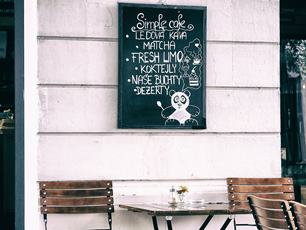 Simple cafe
LEDOVÁ KÁVA
• MATCHA
• FRESH LIMO
• KOKTEJLY
• NAŠE BUCHTY
• DEZERTY